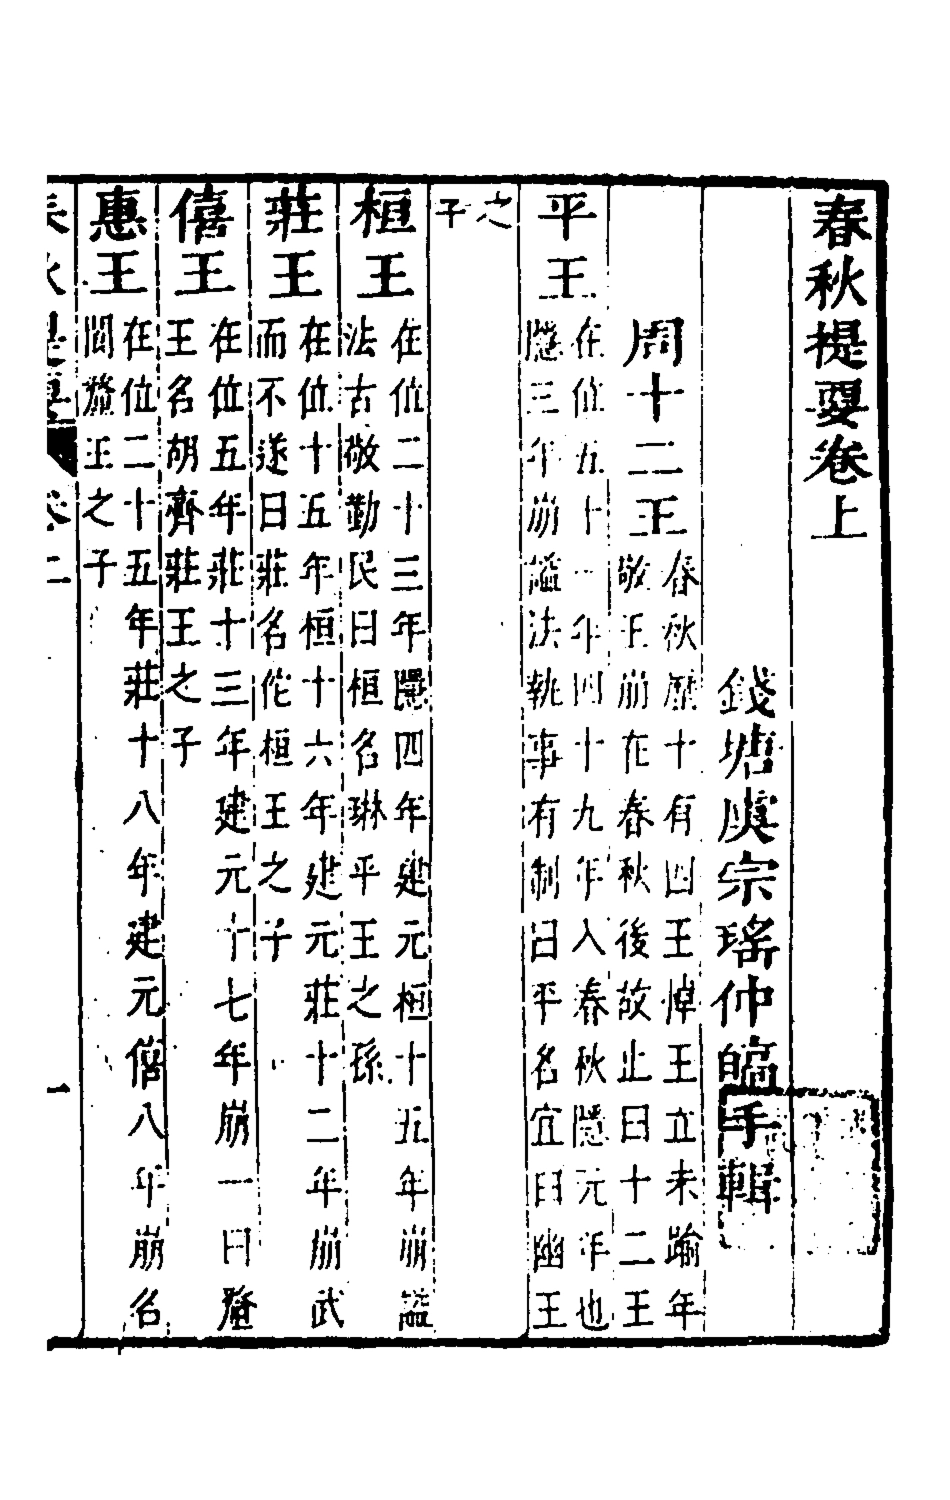 春秋提要卷上
錢塘虞宗瑤仲皜手輯
周十二王
春秋歷十有四王悼王立未踰年
敬王崩在春秋後故止曰十二王
平王
在位五十一年四十九年入春秋隱元年也
隱三年崩謚法執事有制曰平名宜臼幽王
之子
桓王
在位二十三年隱四年建元桓十五年崩謚
法古敬勤民曰桓名琳平王之孫
莊王
在位十五年桓十六年建元莊十二年崩武
而不遂曰莊名佗桓王之子
僖王
在位五年莊十三年建元十七年崩一曰釐
王名胡齊莊王之子
惠王
在位二十五年莊十八年建元僖八年崩名
閬釐王之子
一